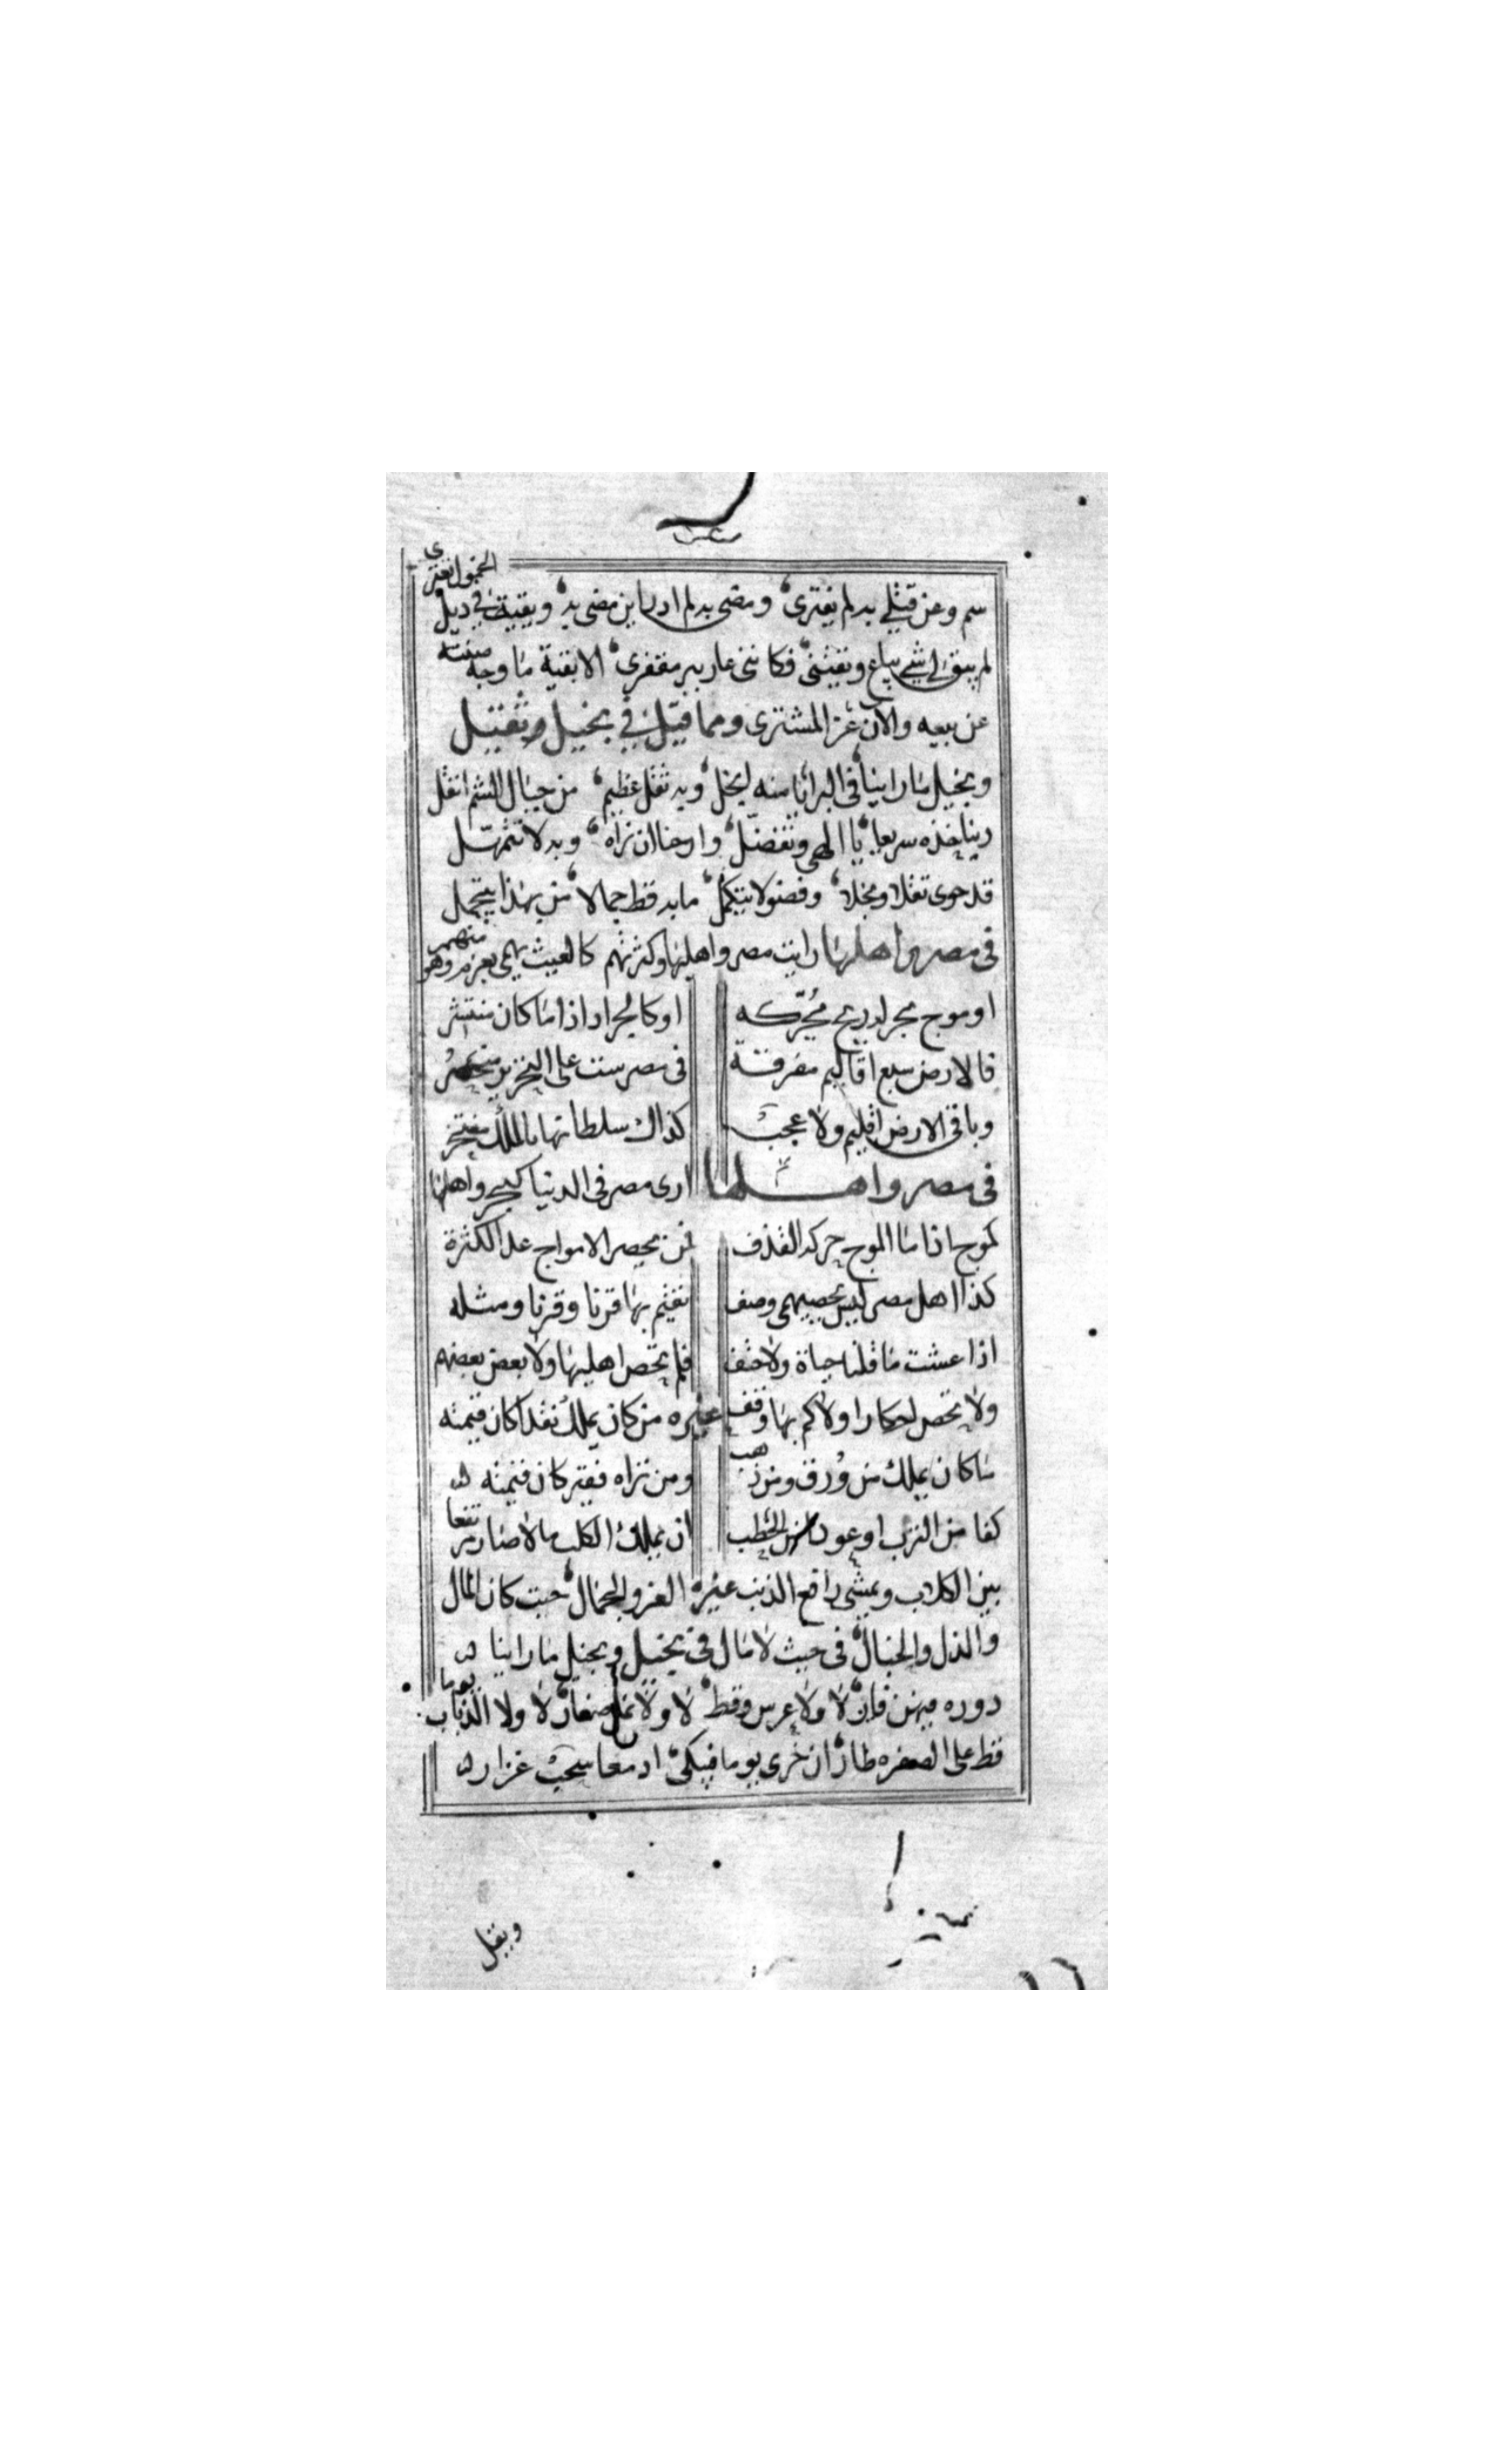 سم وعن قتلي بد لم يفترى، ومضى بد لم ادر اين مضى بد، وبقيت في ديل الخبول انعترى
لم يبق لي شي يباع ونفيشنى، فكاننى عار ببر مقفرى، الا بقية ما وجه صنته
عن بيعه والان عز المشترى ومما قيل في بخيل وثقيل
وبخيل ما راينا، فى البرايا منه ابخل، وبه ثقل عظيم، من جبال الشم اثقل
ربنا خذه سريعا، يا الهي وتفضل، وارحنا ان نراه، وبد لا تتمهل
قد حوى ثقلا وبخلا، وفضولا يتكمل، ما بد قط جمالا، من بهذا يتجمل
فى مصر واهلها رايت مصر واهليها وكثرتهم كالغيث يهمي بعزم وهو منهمر
او موج بحر له ريح محركه او كالجراد اذا ما كان منتشر
فالارض سبع اقاليم مفرقة فى مصر ست على التحرير منحصر
وباقى الارض اقليم ولا عجب كذاك سلطانها بالملك مفتخر
فى مصر واهلها ارى مصر فى الدنيا كبحر واهلها
كموج اذا ما الموج حركه القذف فمن يحصر الامواج عد الكثرة
كذا اهل مصر ليس يحصيهم وصف نقيم بها قرنا وقرنا ومثله
اذا عشت ما قلنا حياة ولا حتف فلم تحص اهليها ولا بعض بعضهم
ولا تحص احكارا ولا كم بها وقف غيره من كان يملك نقدا كان قيمته
ما كان يملك من ورق ومن ذهب ومن تراه فقير كان قيمته
كفا من الترب او عود من الحطب ان يملك الكلب مالا صار مرتفعا
بين الكلاب ويمشى رافع الذنب غيره العز والجمال، حيث كان المال
والذل والخبال، فى حيث لا مال فى بخيل وبخيل ما راينا
دوره يوما فيهن فار، لا ولا عرس وقط، لا ولا نمل صغار، لا ولا الذباب
قط على الصفره طار، ان خرى يوما فيبكى، ادمعا سحب غزار
ويقل